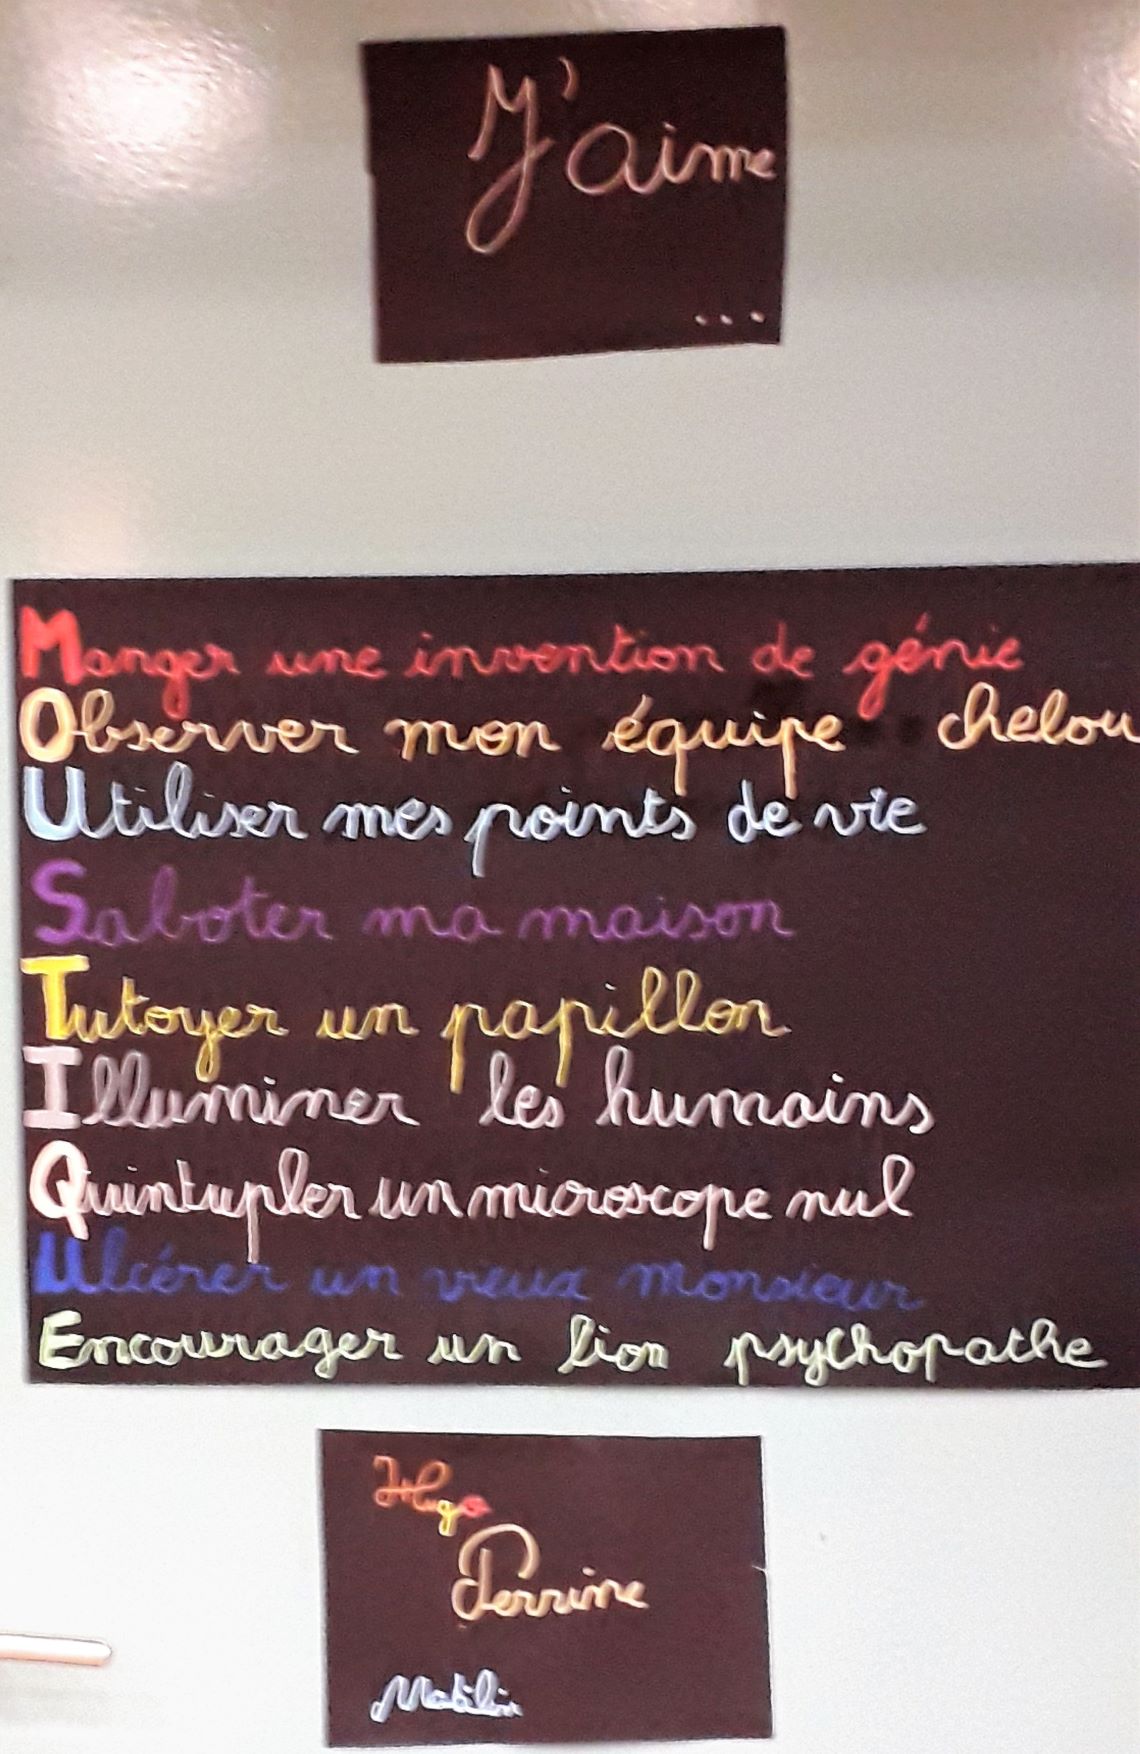 J'aime
...
Manger une invention de génie
Observer mon équipe chelou
Utiliser mes points de vie
Saboter ma maison
Tutoyer un papillon
Illuminer les humains
Quintupler un microscope nul
Ulcérer un vieux monsieur
Encourager un lion psychopathe
Hugo
Perrine